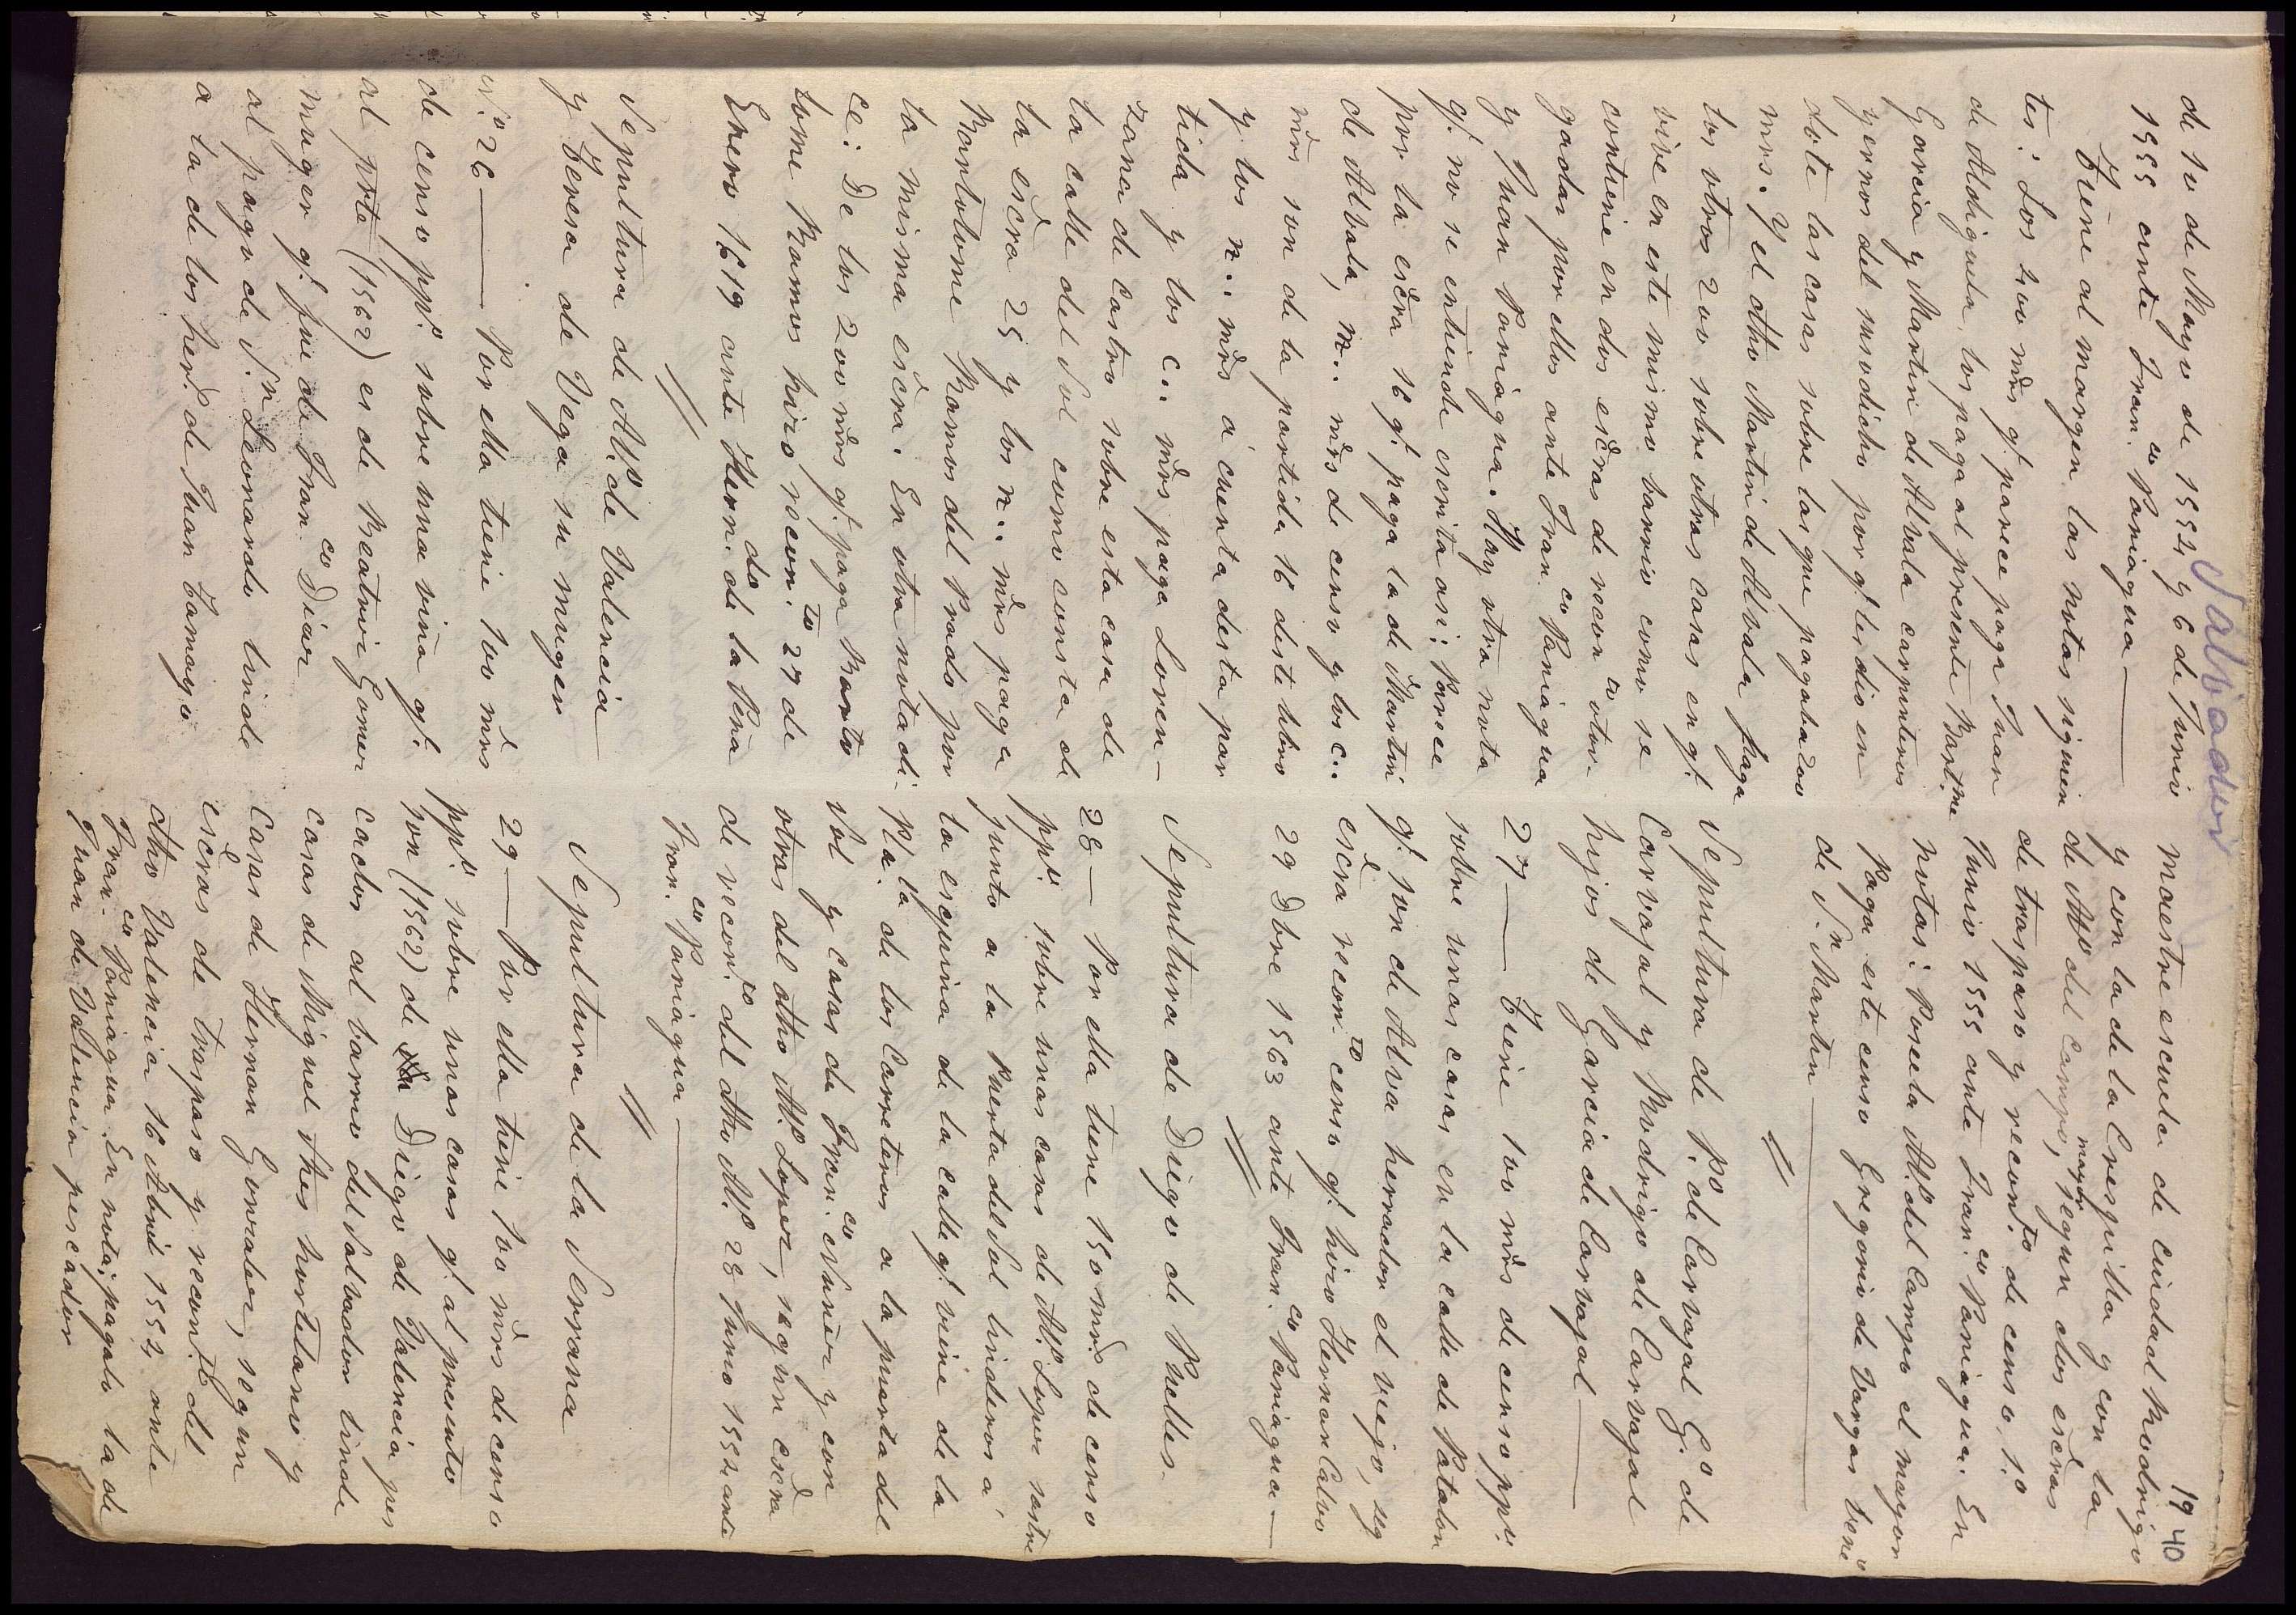 Salbiaderio
19 40
de 10 de Mayo de 1554 y 6 de Junio
1555 ante Fran.co Paniagua —
Tiene al margen las notas siguien
tes: Los 200 mrs q.e parece paga Juan
de Aldiguela, los paga al presente Bart.me
Garcia y Martin de Alvala carpinteros
yernos del susodicho por q.e les dio en
dote las casas sobre las que pagaba 200
mrs. Y el dho Martin de Alvala paga
los otros 200 sobre otras casas en q.e
vive en este mismo barrio como se
contiene en dos escras de recon.to otor-
gadas por ellos ante Fran.co Paniagua
y Juan Paniagua. Hay otra nota
q.e no se entiende escrita asi: Parece
por la escra 16 q.e paga la de Martin
de Alvala, n.. mrs de censo y los c..
mrs son de la partida 16 deste libro
y los n.. mrs á cuenta desta par
tida y los c.. mrs paga Loren-
zana de Castro sobre esta casa de
la calle del Sol como consta de
la escra 25 y los n.. mrs paga
Bartolome Ramos del Prado por
la misma escra. En otra nota di-
ce: De los 200 mrs q.e paga Barto
lome Ramos hizo recon.to 27 de
Enero 1619 ante Hern.do de la Peña
Sepultura de Al.o de Valencia
y Teresa de Vega su muger
N.o 26 — Por ella tiene 100 mrs
de censo pp.o sobre una viña q.e
al prte (1562) es de Beatriz Gomez
muger q.e fue de Fran.co Diaz
al pago de S.n Leonardo linde
a la de los her.os de Juan Tamayo
maestrescuela de Ciudad Rodrigo
y con la de la Cresquilla y con la
de Al.o del Campo, mayor segun dos escras
de traspaso y recon.to de censo, 1.o
Junio 1555 ante Fran.co Paniagua. En
notas: Poseela Al.o del Campo el mayor
Paga este censo Gregorio de Vargas bene.o
de S.n Martin
Sepultura de P.o de Carvajal G.o de
Carvajal y Rodrigo de Carvajal
hijos de Garcia de Carvajal —
27 — Tiene 100 mrs de censo pp.o
sobre unas casas en la calle de Patalon
q.e son de Alva herrador el viejo, seg
escra recon.to censo q.e hizo Hernan Calvo
29 Dbre 1563 ante Fran.co Paniagua —
Sepultura de Diego de Puelles.
28 — Por ella tiene 150 mrs de censo
pp.o sobre unas casas de Al.o Lopez sastre
junto a la Puerta del Sol linderos á
la esquina de la calle q.e viene de la
Pla.ta de los Carreteros a la puerta del
Sol y casas de Fran.co Nuñez y con
otras del dho Al.o Lopez, segun escra
de recon.to del dho Al.o 28 Junio 1554 ante
Fran.co Paniagua —
Sepultura de la Serrana
29 — Por ella tiene 100 mrs de censo
pp.o sobre unas casas q.e al presente
son (1562) de Diego de Valencia pes
cador al barrio del Salvador linde
casas de Miguel Ahes hortelano y
casas de Hernan Gonzalez, segun
escras de traspaso y recon.to del
dho Valencia 16 Abril 1554 ante
Fran.co Paniagua. En nota: pagalo la de
Juan de Valencia pescador